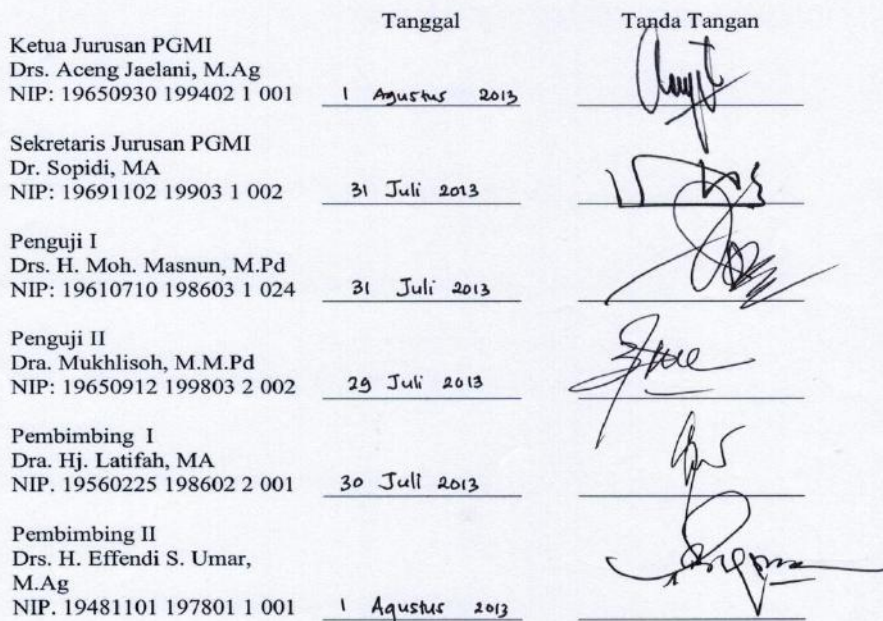 Tanggal Tanda Tangan
Ketua Jurusan PGMI
Drs. Aceng Jaelani, M.Ag
NIP: 19650930 199402 1 001 1 Agustus 2013
Sekretaris Jurusan PGMI
Dr. Sopidi, MA
NIP: 19691102 19903 1 002 31 Juli 2013
Penguji I
Drs. H. Moh. Masnun, M.Pd
NIP: 19610710 198603 1 024 31 Juli 2013
Penguji II
Dra. Mukhlisoh, M.M.Pd
NIP: 19650912 199803 2 002 29 Juli 2013
Pembimbing I
Dra. Hj. Latifah, MA
NIP. 19560225 198602 2 001 30 Juli 2013
Pembimbing II
Drs. H. Effendi S. Umar,
M.Ag
NIP. 19481101 197801 1 001 1 Agustus 2013